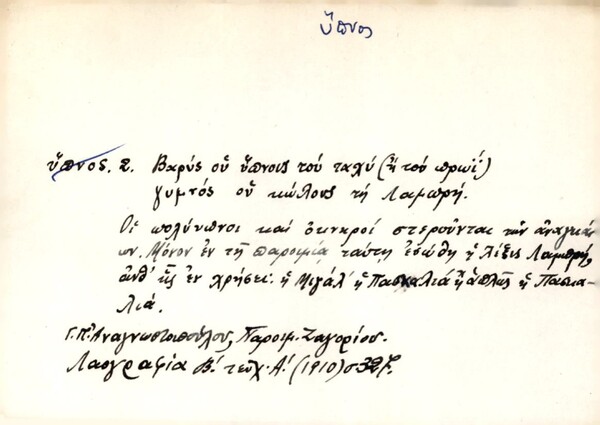 ὕπνος
ὕπνος. 2. Βαρύς οὑ ὕπνους τοὺ ταχύ (ἤ τοὺ πρωΐ)
γυμνός οὑ κώλους τή Λαμπρή.
Οἱ πολύυπνοι καί ὀκνηροί στεροῦνται τῶν ἀναγκαί-
ων. Μόνον ἐν τῇ παροιμίᾳ ταύτῃ ἐσώθη ἡ λέξις Λαμπρή,
ἀνθ' ἧς ἐν χρήσει ἡ Μιγάλ' ἡ Πασκαλιά ἤ ἁπλῶς ἡ Πασκα-
λιά.
Γ. Π. Ἀναγνωστοπούλου, Παροιμ. Ζαγορίου.
Λαογραφία Β! τεῦχ. Α! (1910) σ.